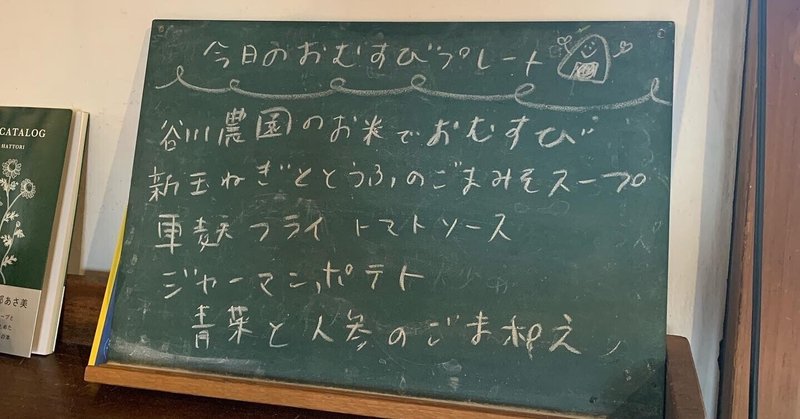 今日のおむすびプレート
谷川農園のお米でおむすび
新玉ねぎととうふのごまみそスープ
車麩フライ トマトソース
ジャーマンポテト
青菜と人参のごま和え
CATALOG
HATTORI
部あさ美